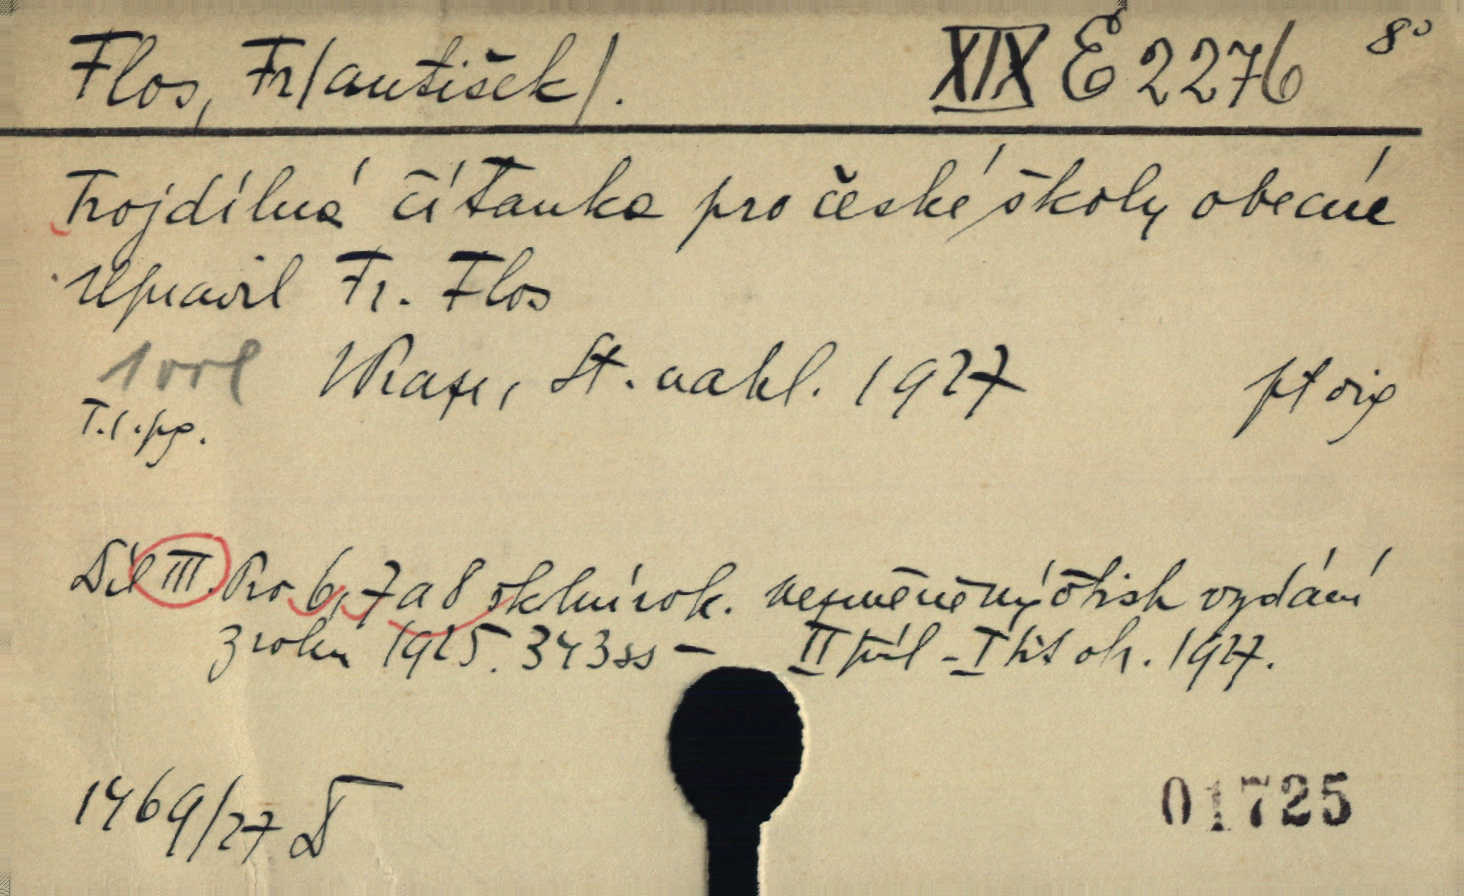 Flos, Fr/antišek/. XIX E 2276 8°
Trojdílná čítanka pro české školy obecné
Upravil Fr. Flos
V Praze, St. nakl. 1927
T.1.
Díl III. Pro 6, 7 a 8 šk. rok. nezměněný otisk vydání
z roku 1925. 343 ss — II příl - I tit ob. 1927.
1469/27 D
01725